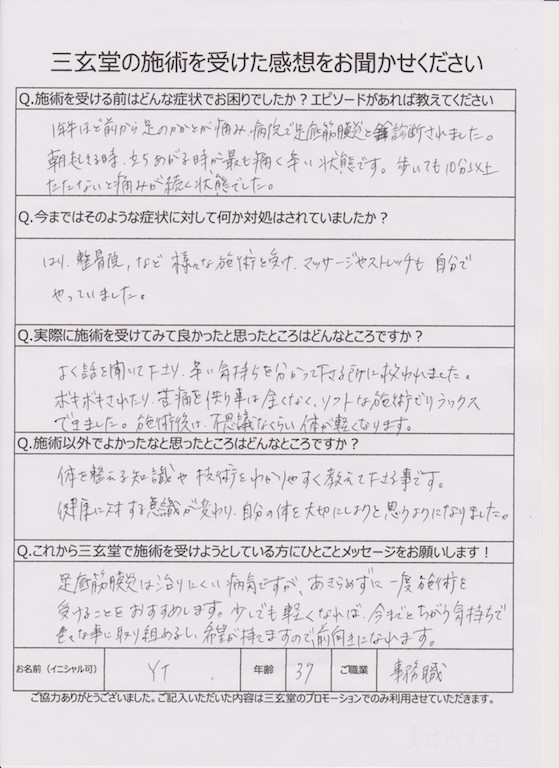 三玄堂の施術を受けた感想をお聞かせください
Q.施術を受ける前はどんな症状でお困りでしたか？エピソードがあれば教えてください
1年ほど前から足のかかとが痛み、病院で足底筋膜炎と診断されました。
朝起きる時、立ちあがる時が最も痛く辛い状態です。歩いても10分以上
たたないと痛みが続く状態でした。
Q.今まではそのような症状に対して何か対処はされていましたか？
はり、整骨院、など様々な施術を受け、マッサージやストレッチも自分で
やっていました。
Q.実際に施術を受けてみて良かったと思ったところはどんなところですか？
よく話を聞いて下さり、辛い気持ちを分かって下さる所に救われました。
ボキボキされたり、苦痛を伴う事は全くなく、ソフトな施術でリラックス
できました。施術後は、不思議なくらい体が軽くなります。
Q.施術以外でよかったなと思ったところはどんなところですか？
体を整える知識や技術をわかりやすく教えて下さる事です。
健康に対する意識が変わり、自分の体を大切にしようと思うようになりました。
Q.これから三玄堂で施術を受けようとしている方にひとことメッセージをお願いします！
足底筋膜炎は治りにくい病気ですが、あきらめずに一度施術を
受けることをおすすめします。少しでも軽くなれば、今までとちがう気持ちで
色々な事に取り組めるし、希望が持てますので前向きになれます。
お名前（イニシャル可） YT 年齢 37 ご職業 事務職
ご協力ありがとうございました。ご記入いただいた内容は三玄堂のプロモーションでのみ利用させていただきます。